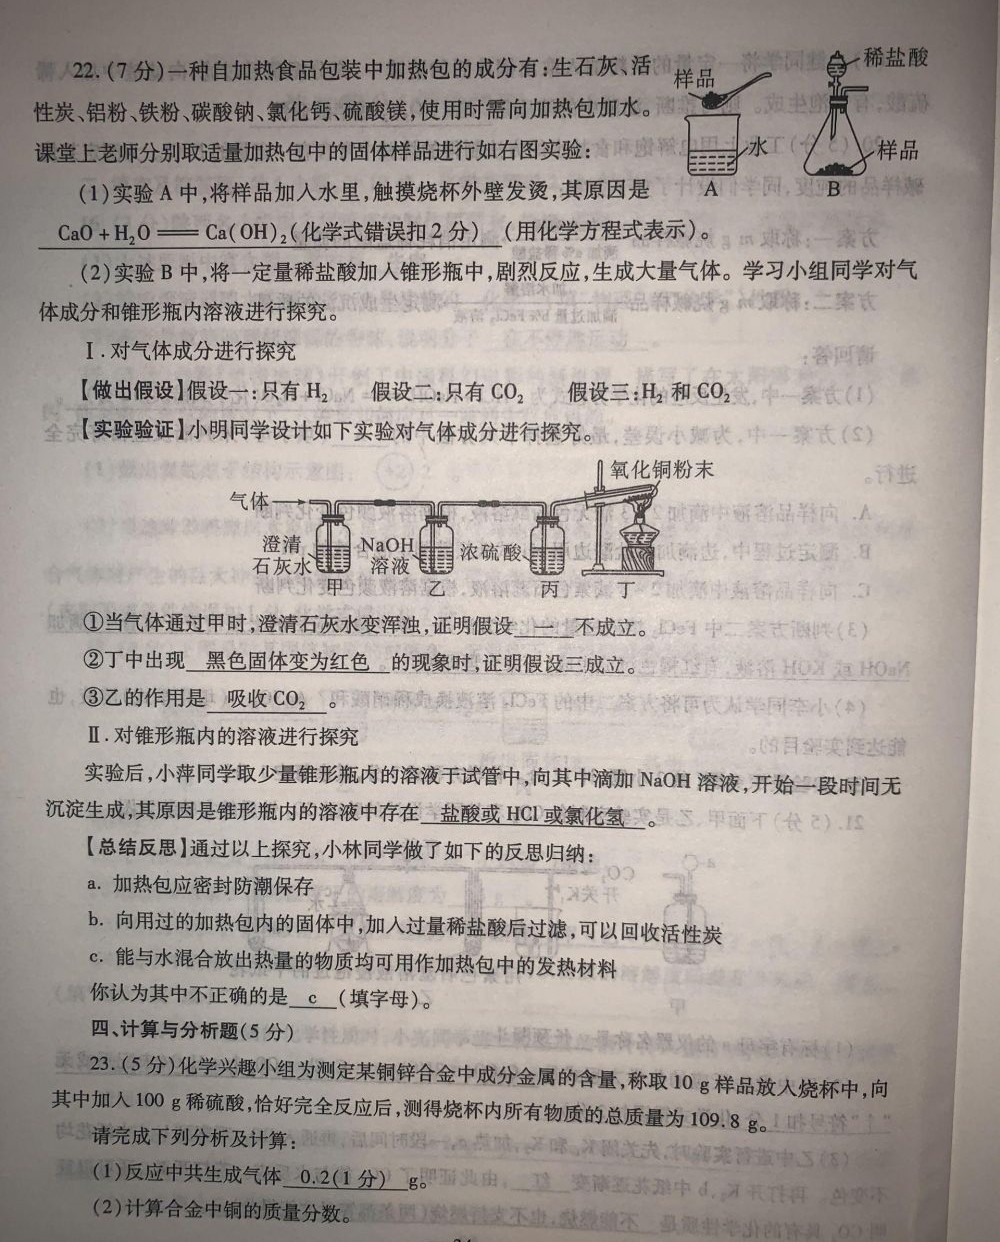 22.(7分)一种自加热食品包装中加热包的成分有:生石灰、活
性炭、铝粉、铁粉、碳酸钠、氯化钙、硫酸镁,使用时需向加热包加水。
课堂上老师分别取适量加热包中的固体样品进行如右图实验:
样品
水
A
稀盐酸
样品
B
(1)实验A中,将样品加入水里,触摸烧杯外壁发烫,其原因是
CaO+H₂O══Ca(OH)₂(化学式错误扣2分) (用化学方程式表示)。
(2)实验B中,将一定量稀盐酸加入锥形瓶中,剧烈反应,生成大量气体。学习小组同学对气
体成分和锥形瓶内溶液进行探究。
Ⅰ.对气体成分进行探究
【做出假设】假设一:只有H₂ 假设二:只有CO₂ 假设三:H₂和CO₂
【实验验证】小明同学设计如下实验对气体成分进行探究。
气体
氧化铜粉末
澄清
石灰水
NaOH
溶液
浓硫酸
甲 乙 丙 丁
①当气体通过甲时,澄清石灰水变浑浊,证明假设 一 不成立。
②丁中出现 黑色固体变为红色 的现象时,证明假设三成立。
③乙的作用是 吸收CO₂ 。
Ⅱ.对锥形瓶内的溶液进行探究
实验后,小萍同学取少量锥形瓶内的溶液于试管中,向其中滴加NaOH溶液,开始一段时间无
沉淀生成,其原因是锥形瓶内的溶液中存在 盐酸或HCl或氯化氢 。
【总结反思】通过以上探究,小林同学做了如下的反思归纳:
a. 加热包应密封防潮保存
b. 向用过的加热包内的固体中,加入过量稀盐酸后过滤,可以回收活性炭
c. 能与水混合放出热量的物质均可用作加热包中的发热材料
你认为其中不正确的是 c (填字母)。
四、计算与分析题(5分)
23.(5分)化学兴趣小组为测定某铜锌合金中成分金属的含量,称取10 g样品放入烧杯中,向
其中加入100 g稀硫酸,恰好完全反应后,测得烧杯内所有物质的总质量为109.8 g。
请完成下列分析及计算:
(1)反应中共生成气体 0.2(1分) g。
(2)计算合金中铜的质量分数。